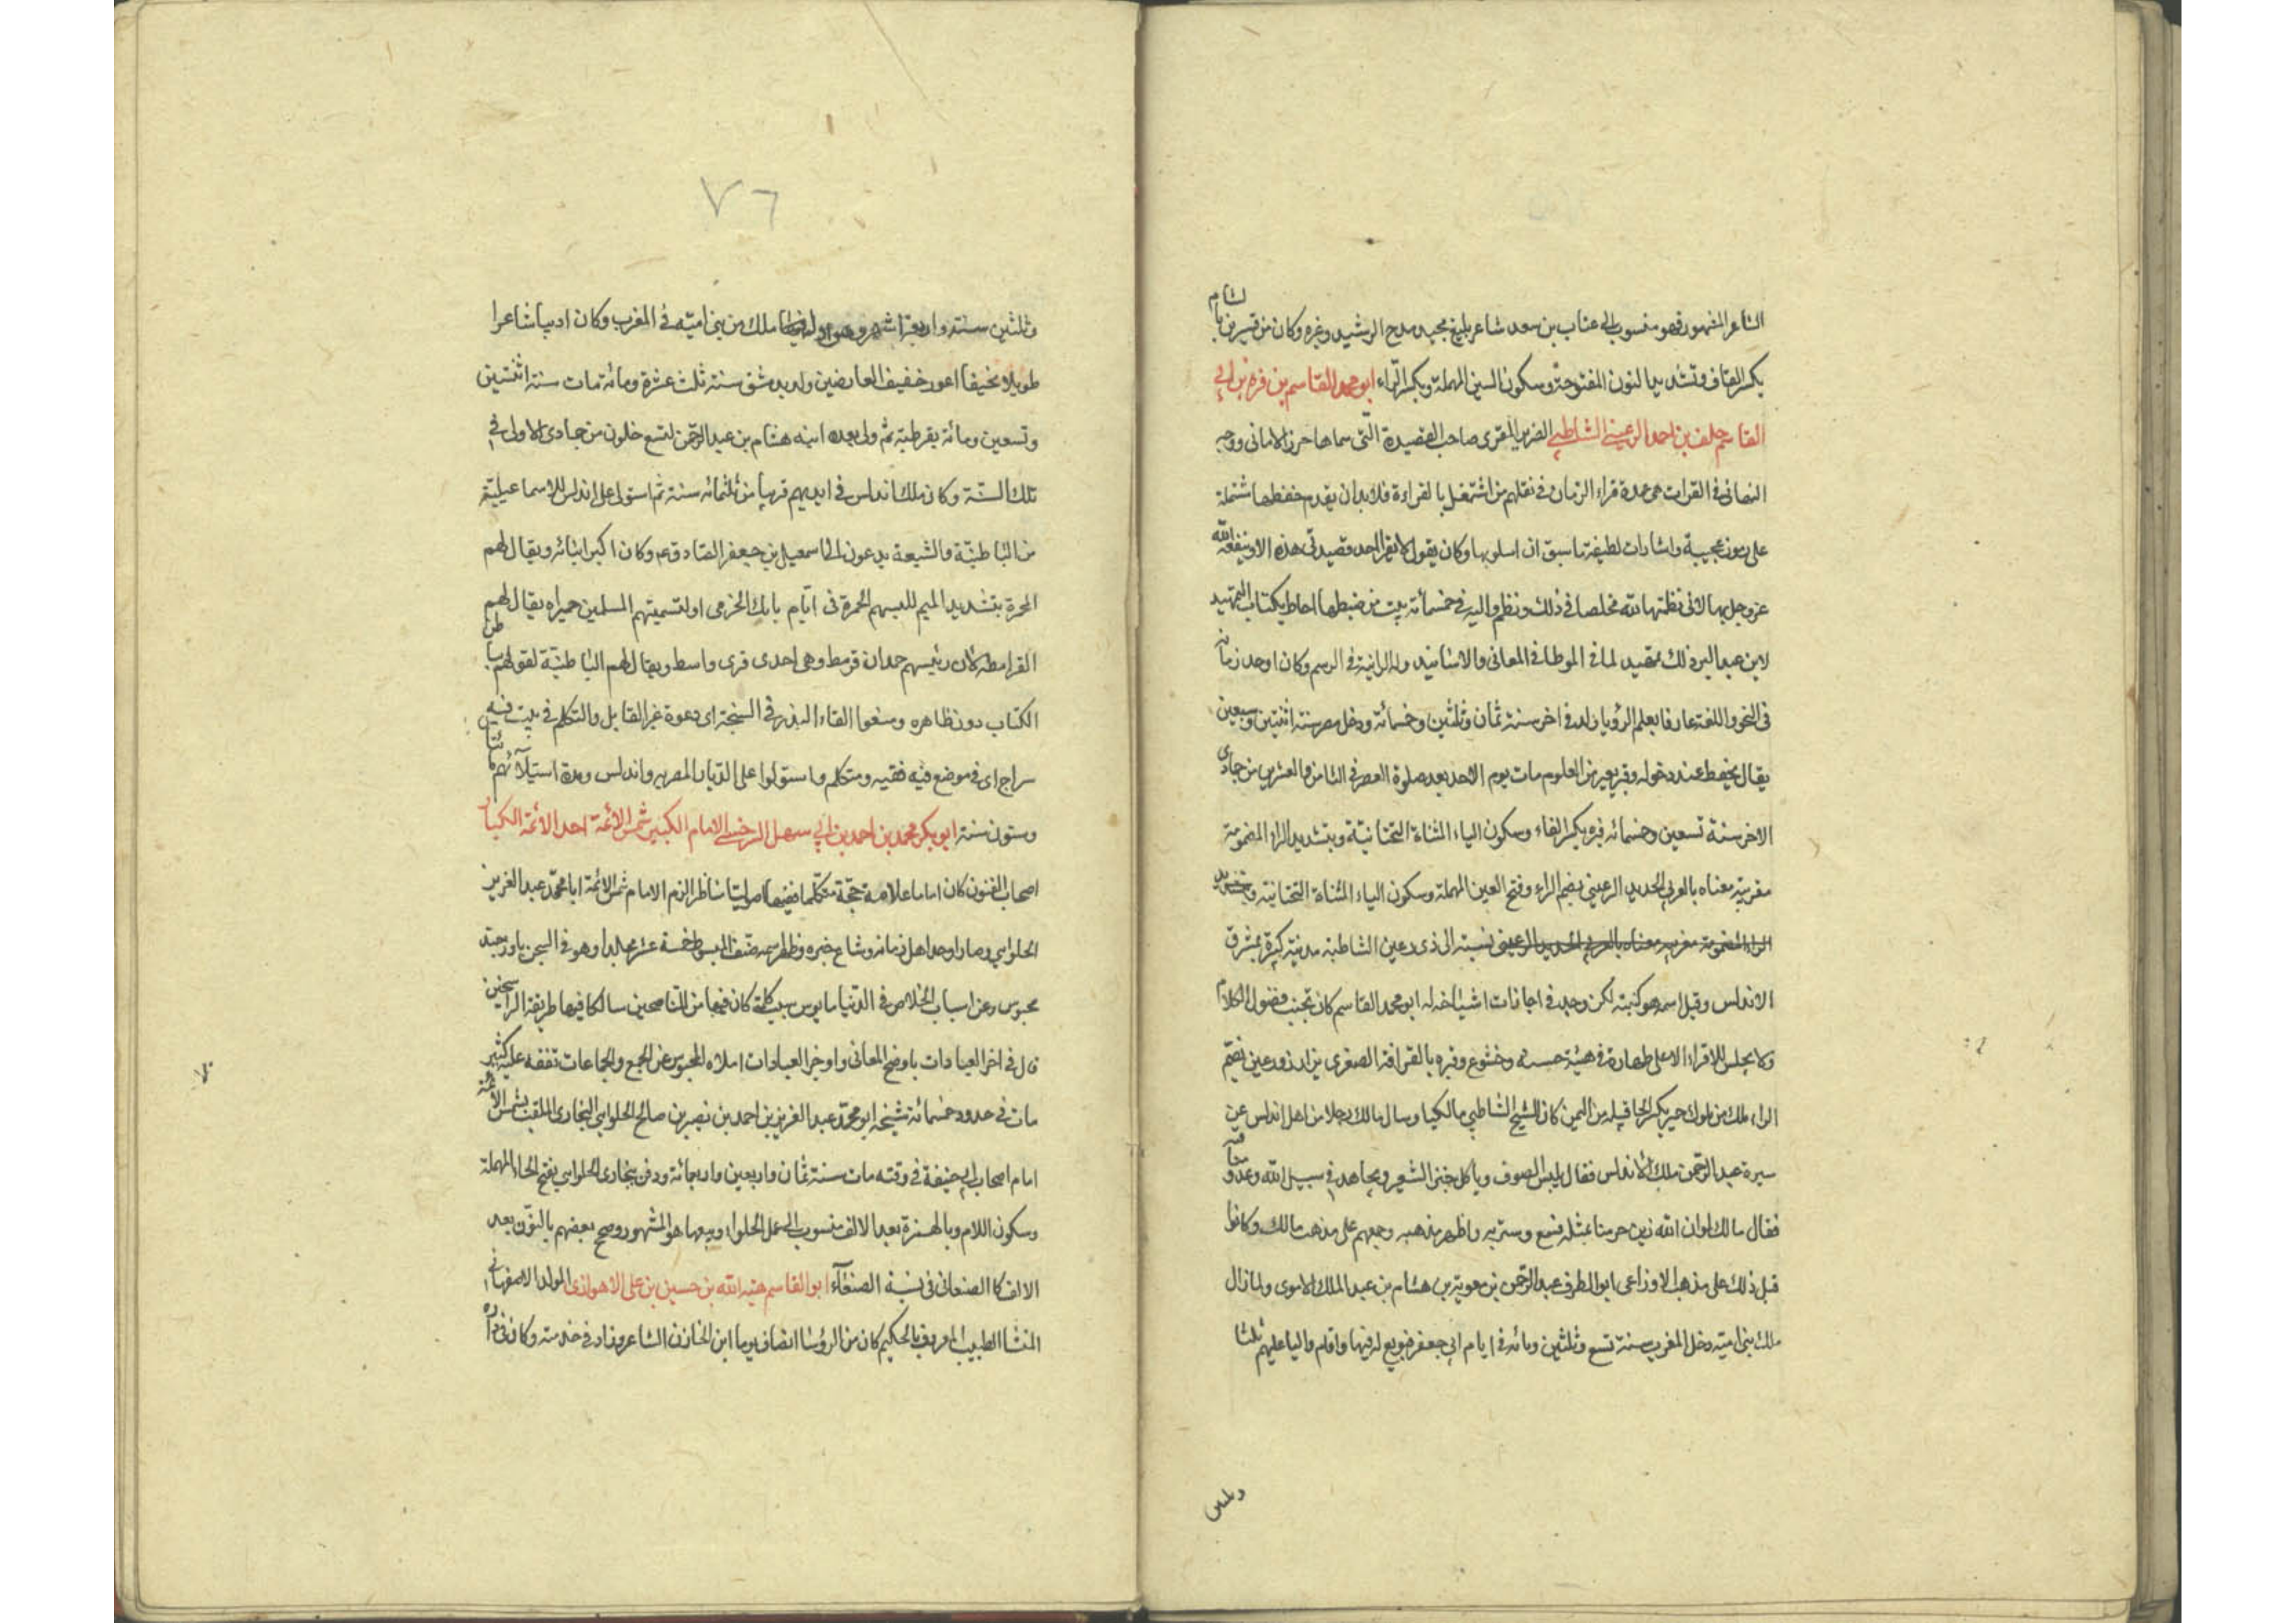 الشاعر المشهور فهو منسوب الى عتاب بن سعد شاعر بليغ مجيد مدح الرشيد وغيره وكان من قنسرين بالشام
بكسر القاف وتشديد النون المفتوحة وسكون السين المهملة وبكسر الراء ابو محمد القاسم بن فيره بن ابي
القاسم خلف بن احمد الرعيني الشاطبي الضرير المقرى صاحب القصيدة التى سماها حرز الامانى ووجه
التهانى فى القرات هى عمدة قراء الزمان فى نقلهم من اشتغل بالقراءة فلابد ان يقدم حفظها مشتملة
على رموز عجيبة واشارات لطيفة ما سبق ان اسلوبها وكان يقول لا يقرا احد قصيدتى هذه الا وينفعه الله
عز وجل بها لانى نظمتها لله مخلصا فى ذلك ونظم دالية فى خمسمائة بيت من حفظها احاط بكتاب التمهيد
لابن عبد البر وذلك تمهيد لما فى الموطا فى المعانى والاسانيد وله الرائية فى الرسم وكان اوحد زمانه
فى النحو واللغة عارفا بعلم الرؤيا ولد فى اخر سنة ثمان وثلثين وخمسمائة ودخل مصر سنة اثنتين وسبعين
يقال يحفظ عند دخوله وقر بعير من العلوم مات يوم الاحد بعد صلوة العصر فى الثامن والعشرين من جمادى
الاخر سنة تسعين وخمسمائه فيره بكسر الفاء وسكون الياء المثناة التحتانية وبتشديد الراء المضمومة
مغربية معناه بالعربى الحديد الرعينى بضم الراء وفتح العين المهملة وسكون الياء المثناة التحتانية وبتشديد
الراء المضمومة مغربيه معناه بالعربى الحديد الرعينى نسبة الى ذى رعين الشاطبة مدينة كبيرة بمشرق
الاندلس وقيل اسمه هو كنيته لكن وجد فى اجازات اشياخه له ابو محمد القاسم كان تجنب فضول الكلام
ولا يجلس للاقراء الا على طهارة فى هيئة حسنة وخشوع وقبره بالقرافة الصغرى يزار ذو رعين بضم
الراء ملك من ملوك حمير بكسر الحا قبيله من اليمن كان الشيخ الشاطبي مالكيا وسال مالك رجلا من اهل اندلس عن
سيرة عبد الرحمن ملك الاندلس فقال يلبس الصوف وياكل خبز الشعير ويجاهد فى سبيل الله وعد مناقبه
فقال مالك لوان الله زين حرمنا بمثله فسمع وسر به واظهر مذهبه وجمعهم على مذهب مالك وكانوا
قبل ذلك على مذهب الاوزاعى ابو المطرف عبد الرحمن بن معوية بن هشام بن عبد الملك الاموى ولما زال
ملك بنى امية دخل المغرب سنة تسع وثلثين ومائه فى ايام ابى جعفر فبويع له فيها واقام واليا عليهم ثلثا
وثلثين
٧٦
وثلثين سنة واربعة اشهر وهو اول ملك من بنى امية فى المغرب وكان اديبا شاعرا
طويلا نحيفا اعور خفيف العارضين ولد بدمشق سنة ثلث عشرة ومائه مات سنة اثنتين
وتسعين ومائة بقرطبة ثم ولى بعده ابنه هشام بن عبد الرحمن لتسع خلون من جمادى الاولى فى
تلك السنة وكان ملك اندلس فى ايديهم قريبا من ثلثمائه سنة ثم استولى على اندلس الاسماعيلية
من الباطنية والشيعة يدعون الى اسمعيل بن جعفر الصادق عم وكان اكبر ابنائه ويقال لهم
المحمرة بتشديد الميم للبسهم الحمرة فى ايام بابك الخرمى او لتسميتهم المسلمين حميرا ويقال لهم
القرامطه لان رئيسهم حمدان قرمط وهى احدى قرى واسط ويقال لهم الباطنية لقولهم بباطن
الكتاب دون ظاهره ومنعوا القاء البذر فى السبخة اى دعوة غير القابل والتكلم فى بيت فيه
سراج اى فى موضع فيه فقيه ومتكلم واستولوا على الديار المصريه واندلس ومدة استيلائهم مائتان
وستون سنة ابو بكر محمد بن احمد بن ابي سهل السرخسي الامام الكبير شمس الائمة احد الائمة الكبار
اصحاب الفنون كان اماما علامة حجة متكلما فقيها اصوليا مناظرا لزم الامام شمس الائمة ابا محمد عبد العزيز
الحلواىي وصار اوحد اهل زمانه وشاع خبره وظهر اسمه صنف المبسوط خمسة عشر مجلدا وهو فى السجن باوزجند
محبوس وعن اسباب الخلاص فى الدنيا مايوس بسبب كلمة كان فيها من الناصحين سالكا فيها طريقة الراسخين
قال فى اخر العبادات باوضح المعانى واوجز العبارات املاه المحبوس عن الجمع والجماعات تفقه عليه كثير
مات فى حدود خمسمائة شيخه ابو محمد عبد العزيز بن احمد بن نصر بن صالح الحلوائي البخارى الملقب بشمس الائمة
امام اصحاب ابي حنيفة فى وقته مات سنة ثمان واربعين واربعمائة ودفن ببخارى الحلواىي بفتح الحاء المهملة
وسكون اللام وبالهمزة بعد الالف منسوب الى عمل الحلواء وبيعها هو المشهور وصح بعضهم بالنون بعد
الالف كالصنعانى فى نسبة الصنعاء ابو القاسم هبة الله بن حسين بن على الاهوازى المولد الاصفهانى
المنشا الطبيب المعروف بالحكيم كان من الرؤسا انضاف يوما ابن الخازن الشاعر وزاد فى خدمته وكان فى داره